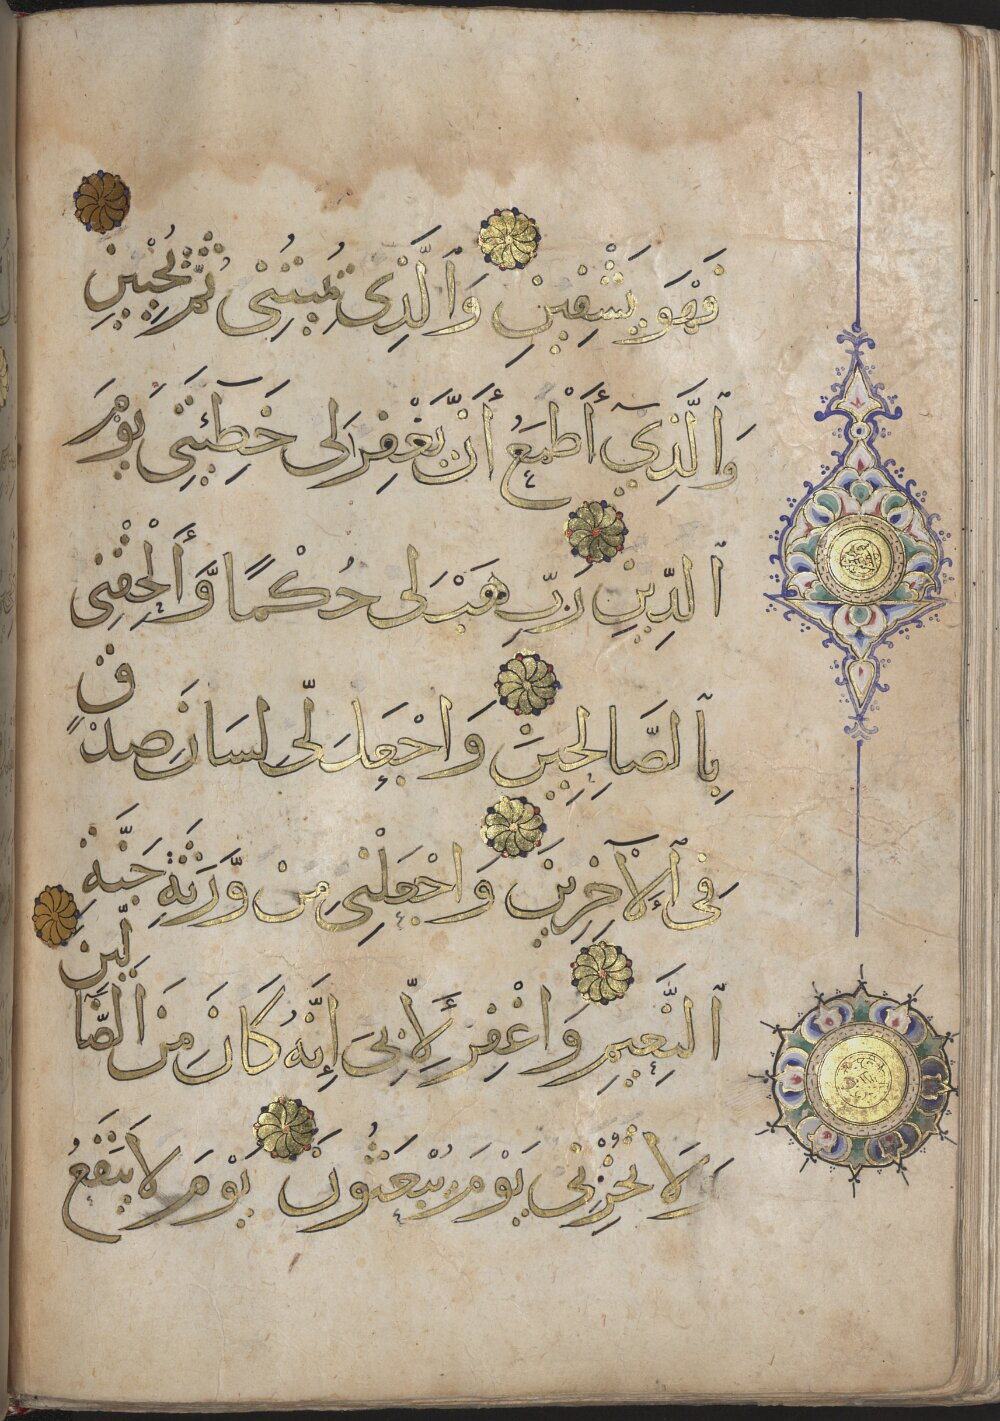 فَهُوَ يَشْفِينِ وَالَّذِي يُمِيتُنِي ثُمَّ يُحْيِينِ
وَالَّذِي أَطْمَعُ أَن يَغْفِرَ لِي خَطِيئَتِي يَوْمَ
الدِّينِ رَبِّ هَبْ لِي حُكْمًا وَأَلْحِقْنِي
بِالصَّالِحِينَ وَاجْعَل لِّي لِسَانَ صِدْقٍ
فِي الْآخِرِينَ وَاجْعَلْنِي مِن وَّرَثَةِ جَنَّةِ
النَّعِيمِ وَاغْفِرْ لِأَبِي إِنَّهُ كَانَ مِنَ الضَّالِّينَ
وَلَا تُخْزِنِي يَوْمَ يُبْعَثُونَ يَوْمَ لَا يَنفَعُ